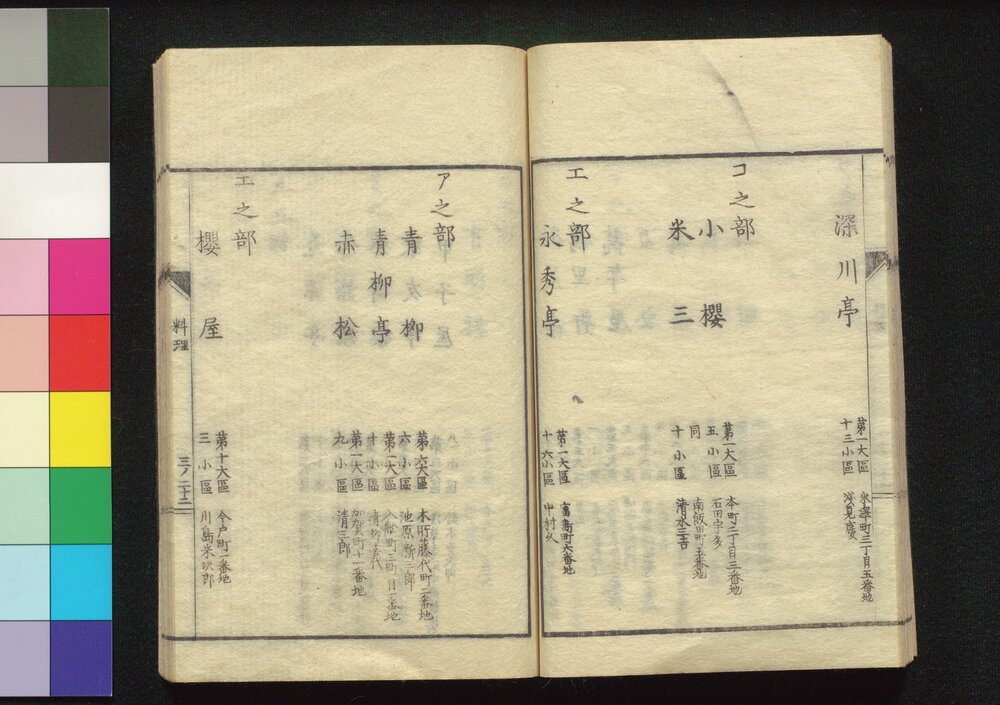 深川亭
第一大區 米澤町三丁目五番地
十三小區 浅見慶
コ之部
小櫻
第一大區 本町二丁目三番地
五小區 石田
米三
同 南飯田町五番地
十小區 清水三吉
エ之部
永秀亭
第一大區 富島町六番地
十六小區 中村久
ア之部
青柳
第六大區 本所藤代町一番地
六小區 池原新三郎
青柳亭
第一大區 入船町三町目一番地
十小區 青柳喜代
赤松
第一大區 加賀町十一番地
九小區 清三郎
エ之部
櫻屋
第十大區 今戸町一番地
三小區 川島米次郎
料理
三ノ二十二